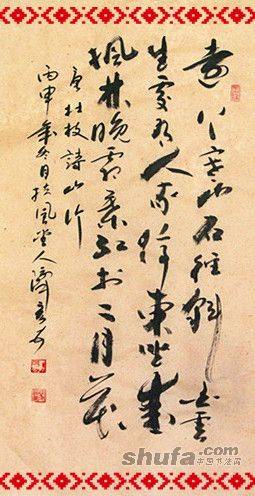 遠上寒山石徑斜白雲
生處有人家停車坐愛
楓林晚霜葉紅於二月花
唐杜牧詩山行
丙申年冬月扶風堂人
shufa.com
中国书法网